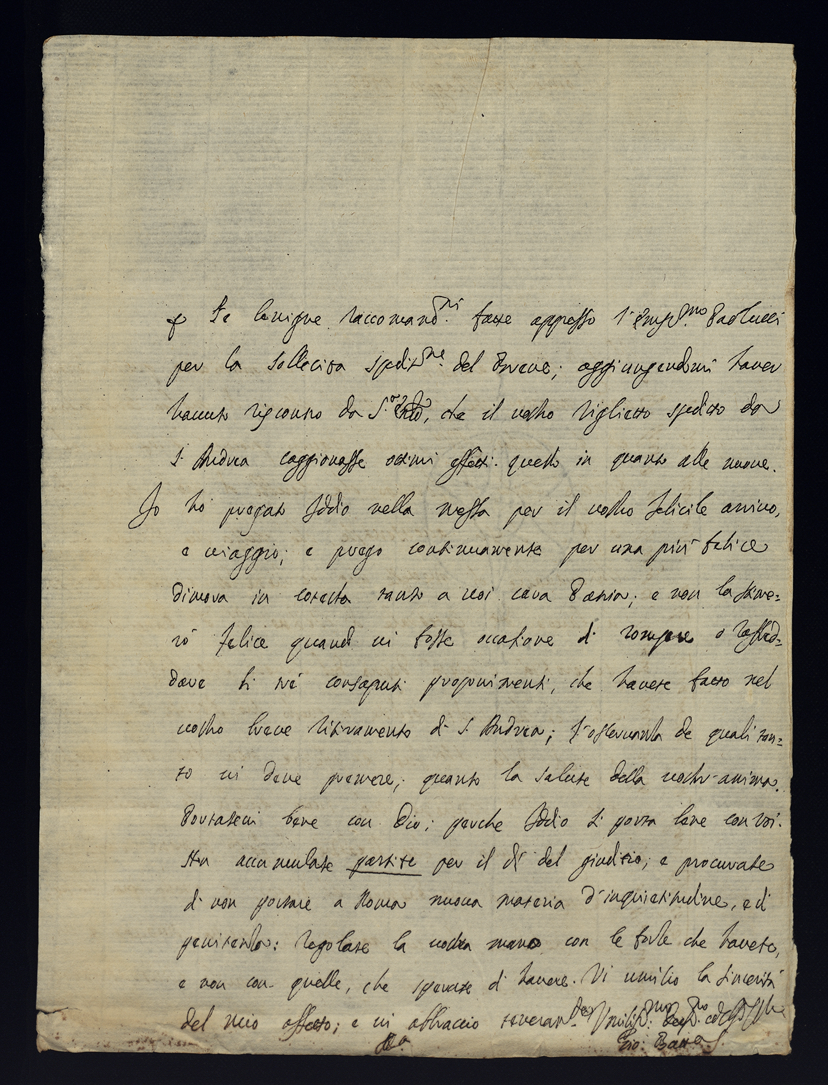 le benigne raccomand.ni fatte appresso l'Em.mo Paolucci
per la sollecita spedit.ne del Breve; aggiungendomi haver
havuto riscontro da che il vostro viglietto spedito da
S. Andrea caggionasse ottimi effetti. questo in quanto alle nuove.
Io hò pregato Iddio nella messa per il vostro felicile arrivo,
e viaggio; e prego continuamente per una più felice
dimora in cotesta tanto a voi cara Patria; e non la stime=
rò felice quando vi fosse occasione di rompere o raffred=
dare li trè consaputi proponimenti, che havete fatto nel
vostro breve ritiramento di S. Andrea; l'osservanza de quali tan=
to vi deve premere, quanto la salute della vostra anima.
Portatevi bene con Dio; perche Iddio si porta bene con voi.
Non accumulate partite per il dì del giudizio; e procurate
di non portare a Roma nuova materia d'inquietitudine, e di
penitenza: regolate la vostra mano con le forze che havete,
e non con quelle, che sperate di havere. Vi umilio la sincerità
del mio affetto; e vi abbraccio
Gio: Batta